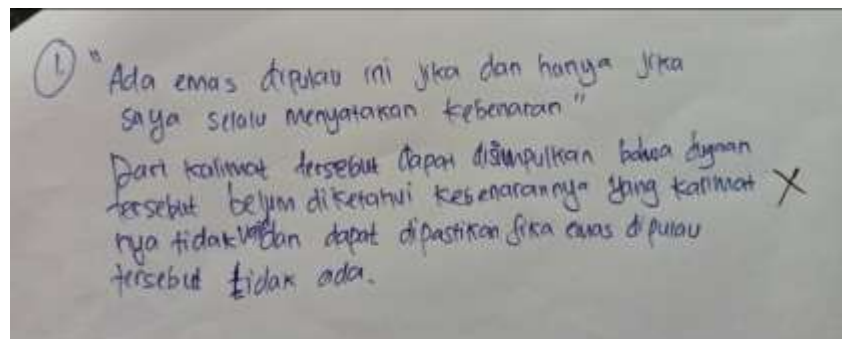 1. "Ada emas dipulau ini jika dan hanya jika
saya selalu menyatakan kebenaran"
Dari kalimat tersebut dapat disimpulkan bahwa dugaan
tersebut belum diketahui kebenarannya yang kalimat X
nya tidak valid dan dapat dipastikan jika emas di pulau
tersebut tidak ada.